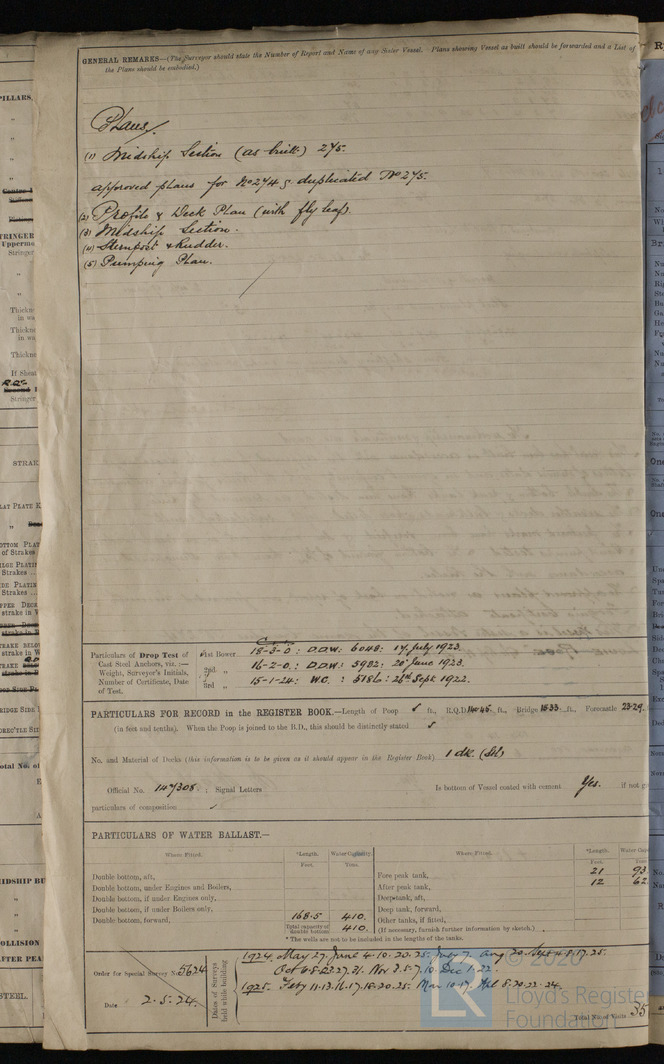 GENERAL REMARKS—(The Surveyor should state the Number of Report and Name of any Sister Vessel. Plans showing Vessel as built should be forwarded and a List of
the Plans should be embodied.)
Plans/
(1) Midship Section (as built.) 275.
approved plans for No 274 & duplicated No 275.
(2) Profile & Deck Plan (with fly leaf).
(3) Midship Section.
(4) Sternpost & Rudder.
(5) Pumping Plan.
Particulars of Drop Test of
Cast Steel Anchors, viz. :—
Weight, Surveyor's Initials,
Number of Certificate, Date
of Test.
1st Bower 18-3-0 : D.D.W: 6048: 17 July 1923.
2nd „ 16-2-0 : D.D.W: 5982: 20 June 1923.
3rd „ 15-1-24: W.C. : 5186: 26th Sept 1922.
PARTICULARS FOR RECORD in the REGISTER BOOK.—Length of Poop ft., R.Q.D. ft., Bridge ft., Forecastle 23·29
(in feet and tenths). When the Poop is joined to the B.D., this should be distinctly stated
No. and Material of Decks (this information is to be given as it should appear in the Register Book) 1 dk. (Stl)
Official No. 147308 ; Signal Letters Is bottom of Vessel coated with cement Yes. if not
particulars of composition
PARTICULARS OF WATER BALLAST.—
Where Fitted. *Length. Water Capacity. Where Fitted. *Length. Water
Feet. Tons. Feet.
Double bottom, aft, Fore peak tank, 21 93
Double bottom, under Engines and Boilers, After peak tank, 12 62
Double bottom, if under Engines only, Deep tank, aft,
Double bottom, if under Boilers only, Deep tank, forward,
Double bottom, forward, 168·5 410. Other tanks, if fitted,
Total capacity of double bottom 410. (If necessary, furnish further information by sketch.)
* The wells are not to be included in the lengths of the tanks.
Order for Special Survey No. 5624
Date 2.5.24.
Dates of Surveys held while building
1924. May 27. June 4.10.20.25. July 7. Aug 20. Sept 4.8.17.25.
Oct 6.8.23.27.31. Nov 3.5.7.10. Dec 1.22.
1925. Feby 11.13.16.17.18.20.25. Mar 10.17. Apl 8.20.22.24.
Total No. of Visits 35
© 2020
LR
Lloyd's Register
Foundation